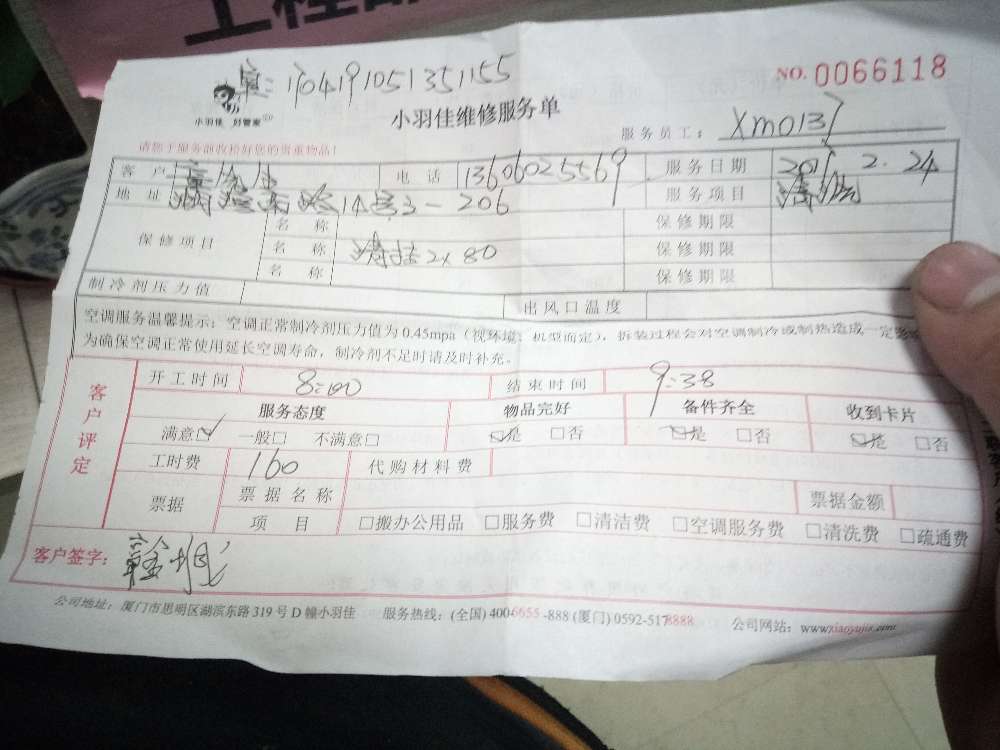 工程部
单: 160419051351155
NO. 0066118
小羽佳 好管家
小羽佳维修服务单
服务员工: Xm0137
请您于服务前收拾好您的贵重物品!
客 户 电 话 13606025569 服务日期 2016. 2. 24
地 址 14号3-206 服务项目 清洗
保修项目 名 称 保修期限
名 称 清挂2x80 保修期限
名 称 保修期限
制冷剂压力值 出风口温度
空调服务温馨提示: 空调正常制冷剂压力值为0.45mpa (视环境、机型而定), 拆装过程会对空调制冷或制热造成一定影响
为确保空调正常使用延长空调寿命, 制冷剂不足时请及时补充。
客户评定
开工时间 8:00 结束时间 9:38
服务态度 物品完好 备件齐全 收到卡片
满意☑ 一般□ 不满意□ ☑是 □否 ☑是 □否 ☑是 □否
工时费 160 代购材料费
票据 票据名称 票据金额
项 目 □搬办公用品 □服务费 □清洁费 □空调服务费 □清洗费 □疏通费
客户签字:
公司地址: 厦门市思明区湖滨东路319号D幢小羽佳 服务热线: (全国) 400-6655-888 (厦门) 0592-5178888 公司网站: www.xiaoyujia.com